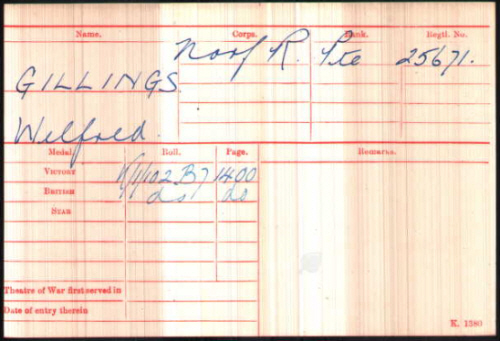 Name. Corps. Rank. Regtl. No.
Norf R. Pte 25671.
GILLINGS
Wilfred.
Medal Roll. Page. Remarks.
VICTORY K/1/102 B7 1400
BRITISH do do
STAR
Theatre of War first served in
Date of entry therein
K. 1380